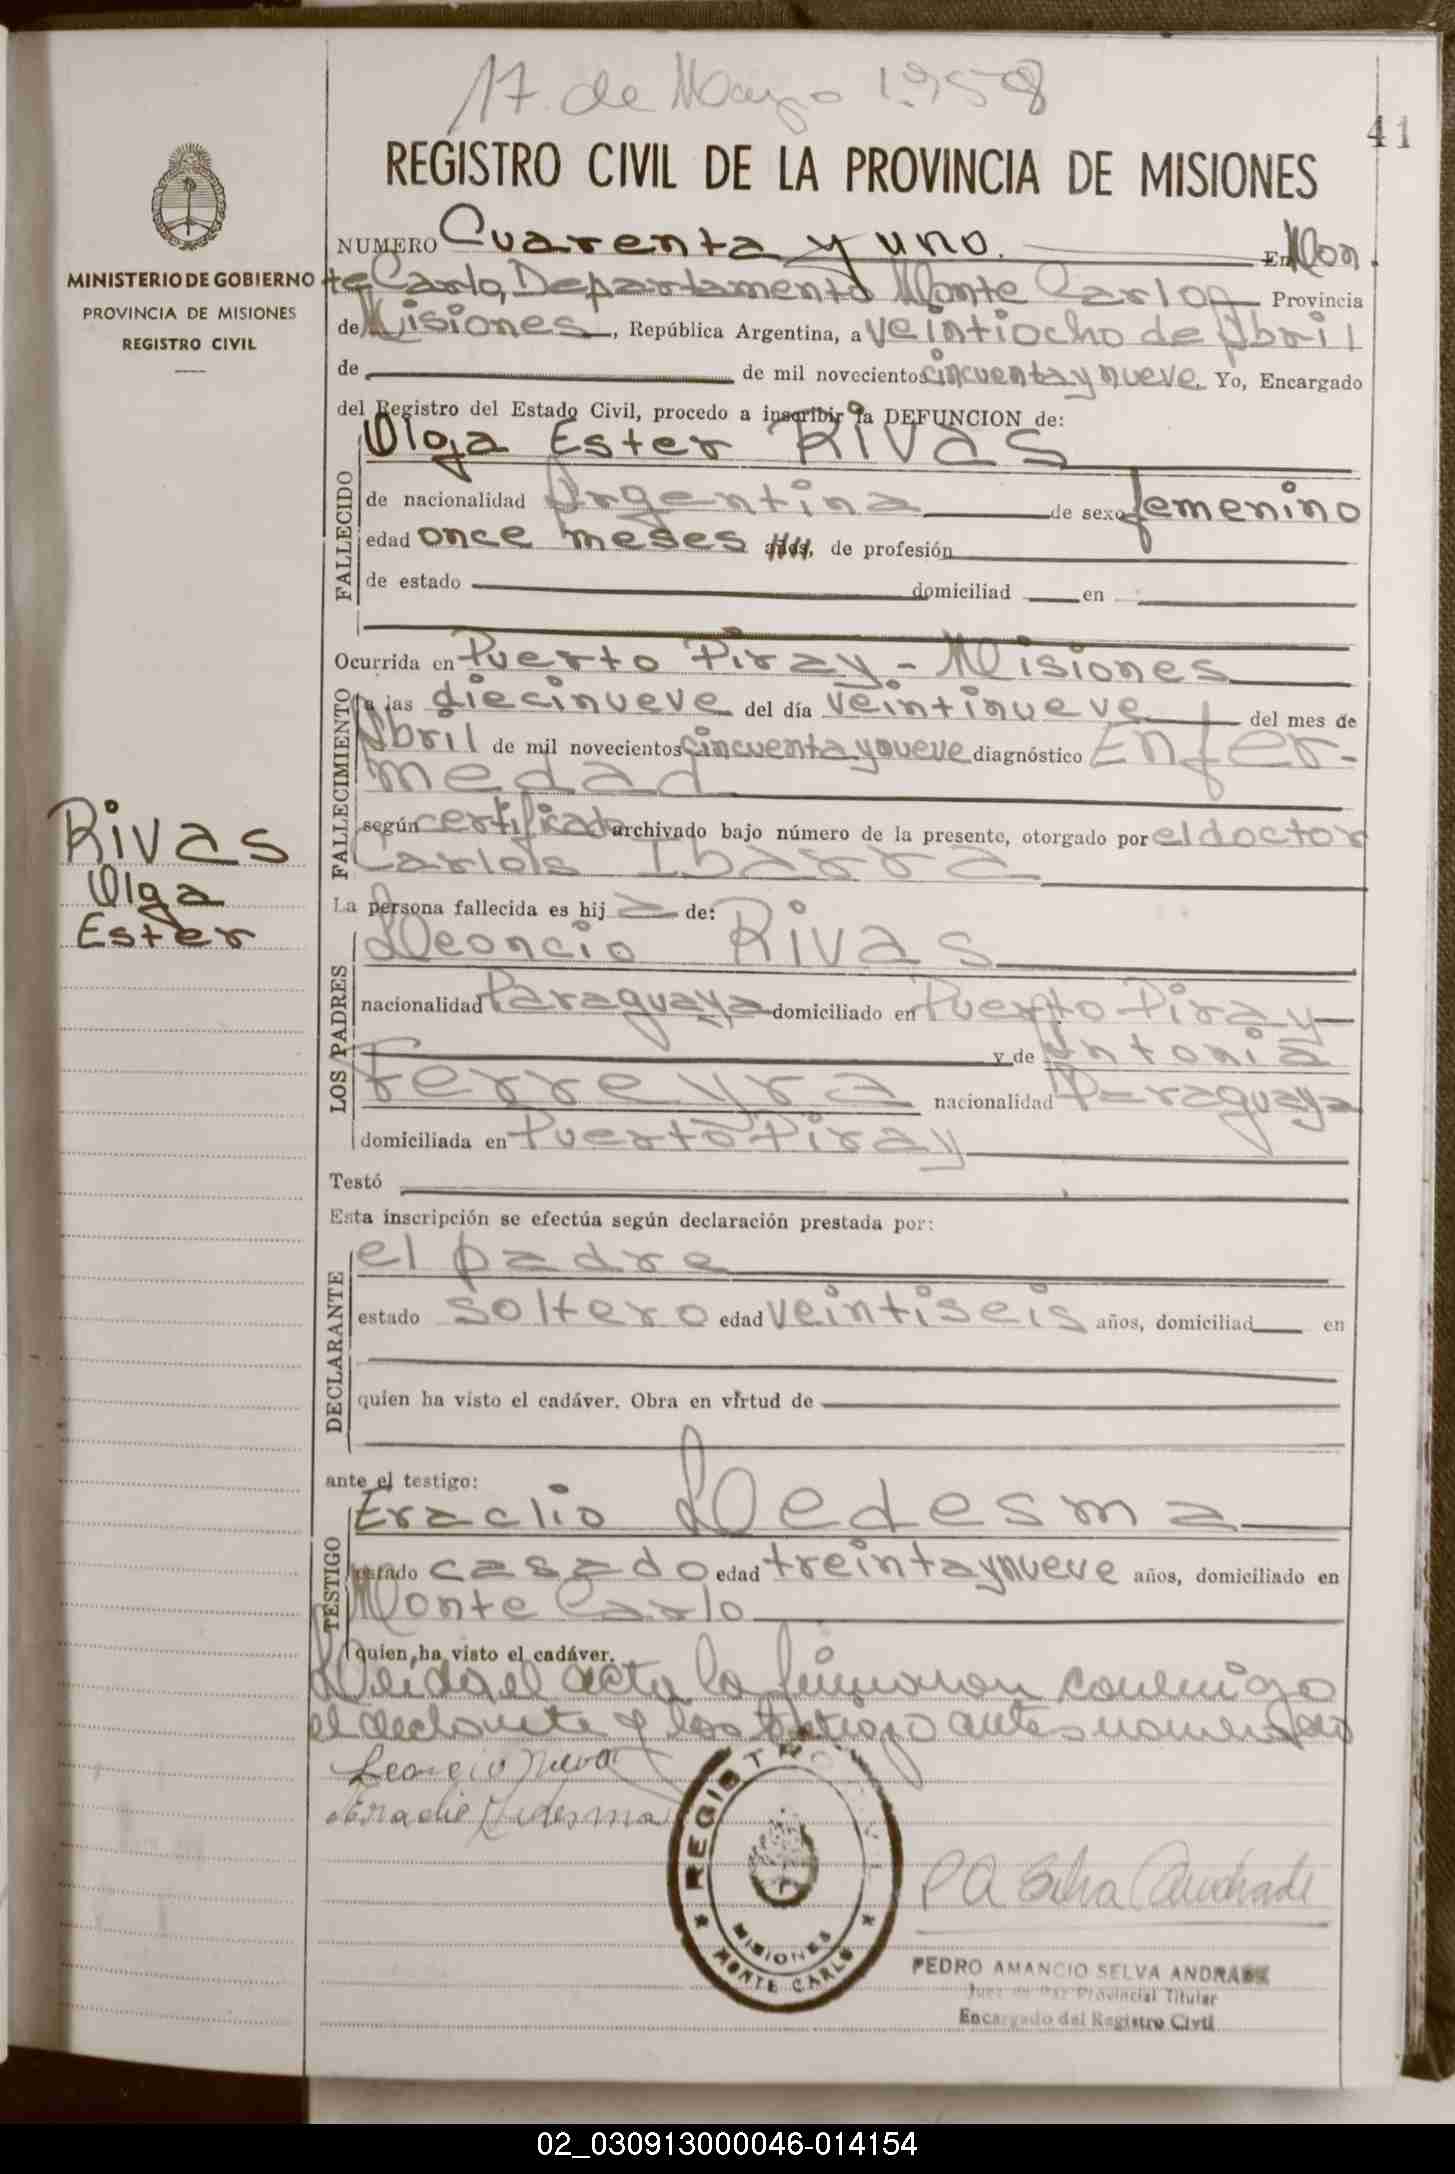 17. de Mayo 1.958
41
REGISTRO CIVIL DE LA PROVINCIA DE MISIONES
MINISTERIO DE GOBIERNO
PROVINCIA DE MISIONES
REGISTRO CIVIL
NUMERO Cuarenta y uno. En Mon
te Carlo, Departamento Monte Carlo Provincia
de Misiones, República Argentina, a veintiocho de Abril
de de mil novecientos cincuenta y nueve. Yo, Encargado
del Registro del Estado Civil, procedo a inscribir la DEFUNCION de:
FALLECIDO
Olga Ester RIVAS
de nacionalidad Argentina de sexo femenino
edad once meses años, de profesión
de estado domiciliad en
Ocurrida en Puerto Piray - Misiones
FALLECIMIENTO
a las diecinueve del día veintinueve del mes de
Abril de mil novecientos cincuenta y nueve diagnóstico Enfer-
medad
según certificado archivado bajo número de la presente, otorgado por el doctor
Carlos Ibarra
Rivas
Olga
Ester
La persona fallecida es hij a de:
LOS PADRES
Leoncio Rivas
nacionalidad Paraguaya domiciliado en Puerto Piray
y de Antonia
Ferreyra nacionalidad Paraguaya
domiciliada en Puerto Piray
Testó
Esta inscripción se efectúa según declaración prestada por:
DECLARANTE
el padre
estado soltero edad veintiseis años, domiciliad en
quien ha visto el cadáver. Obra en virtud de
ante el testigo:
TESTIGO
Eraclio Ledesma
estado casado edad treinta y nueve años, domiciliado en
Monte Carlo
quien ha visto el cadáver.
Leida el acta la firmaron conmigo
el declarante y los testigo antes nombrado
Leoncio
Eraclio Ledesma
REGISTRO CIVIL
MISIONES
MONTE CARLO
P A Selva Andrade
PEDRO AMANCIO SELVA ANDRADE
Juez de Paz Provincial Titular
Encargado del Registro Civil
02_030913000046-014154